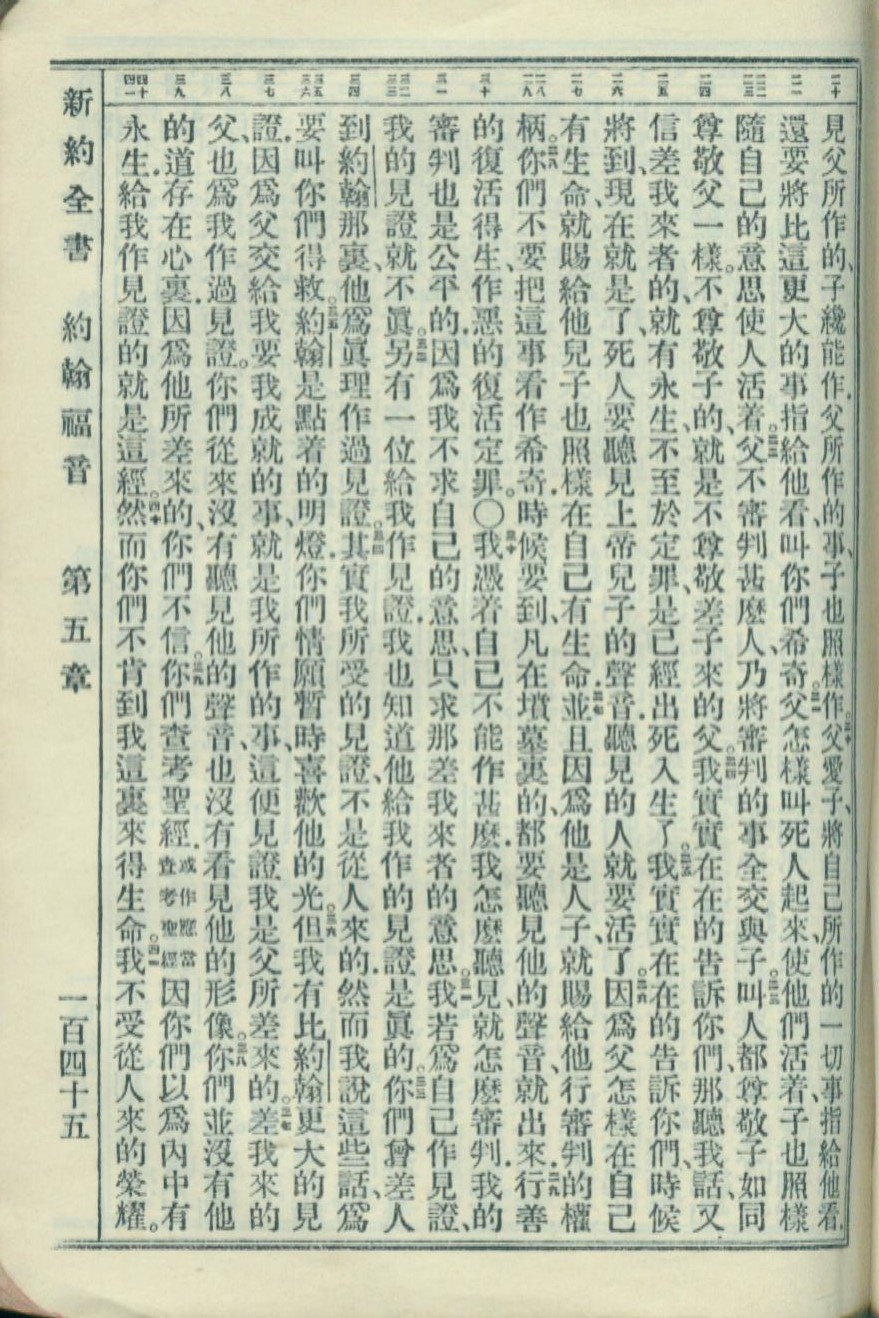 二十 二一 二二 二三 二四 二五 二六 二七 二八 二九 三十 三一 三二 三三 三四 三五 三六 三七 三八 三九 四十 四一
見父所作的、子纔能作、父所作的事、子也照樣作。二十父愛子、將自己所作的一切事指給他看、
還要將比這更大的事指給他看、叫你們希奇。二一父怎樣叫死人起來、使他們活着、子也照樣
隨自己的意思使人活着。二二父不審判甚麼人、乃將審判的事全交與子。二三叫人都尊敬子如同
尊敬父一樣。不尊敬子的、就是不尊敬差子來的父。二四我實實在在的告訴你們、那聽我話、又
信差我來者的、就有永生、不至於定罪、是已經出死入生了。二五我實實在在的告訴你們、時候
將到、現在就是了、死人要聽見上帝兒子的聲音、聽見的人就要活了。二六因爲父怎樣在自己
有生命、就賜給他兒子也照樣在自己有生命、二七並且因爲他是人子、就賜給他行審判的權
柄。二八你們不要把這事看作希奇。時候要到、凡在墳墓裏的、都要聽見他的聲音、就出來、二九行善
的復活得生、作惡的復活定罪〇三十我憑着自己不能作甚麼、我怎麼聽見、就怎麼審判、我的
審判也是公平的、因爲我不求自己的意思、只求那差我來者的意思。三一我若爲自己作見證、
我的見證就不眞。三二另有一位給我作見證、我也知道他給我作的見證是眞的。三三你們曾差人
到約翰那裏、他爲眞理作過見證。三四其實我所受的見證、不是從人來的、然而我說這些話、爲
要叫你們得救。三五約翰是點着的明燈、你們情願暫時喜歡他的光。三六但我有比約翰更大的見
證、因爲父交給我要我成就的事、就是我所作的事、這便見證我是父所差來的。三七差我來的
父、也爲我作過見證。你們從來沒有聽見他的聲音、也沒有看見他的形像。三八你們並沒有他
的道存在心裏、因爲他所差來的、你們不信。三九你們查考聖經、或作應當查考聖經因你們以爲內中有
永生、給我作見證的就是這經。四十然而你們不肯到我這裏來得生命。四一我不受從人來的榮耀。
新約全書 約翰福音 第五章 一百四十五